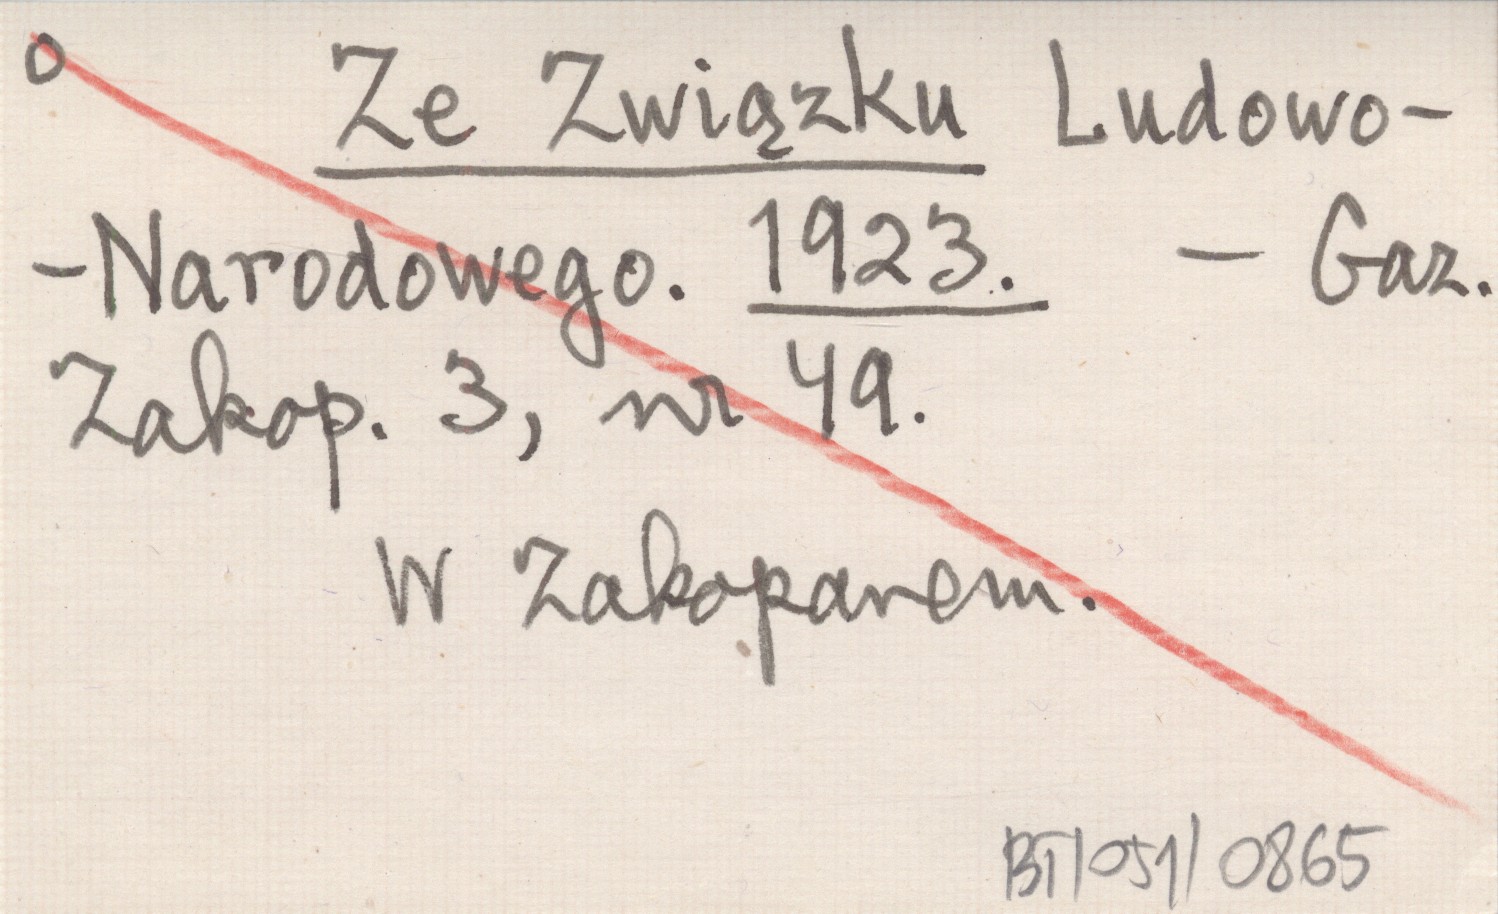 o Ze Związku Ludowo-
-Narodowego. 1923. - Gaz.
Zakop. 3, nr 49.
W Zakopanem.
BT/051/0865